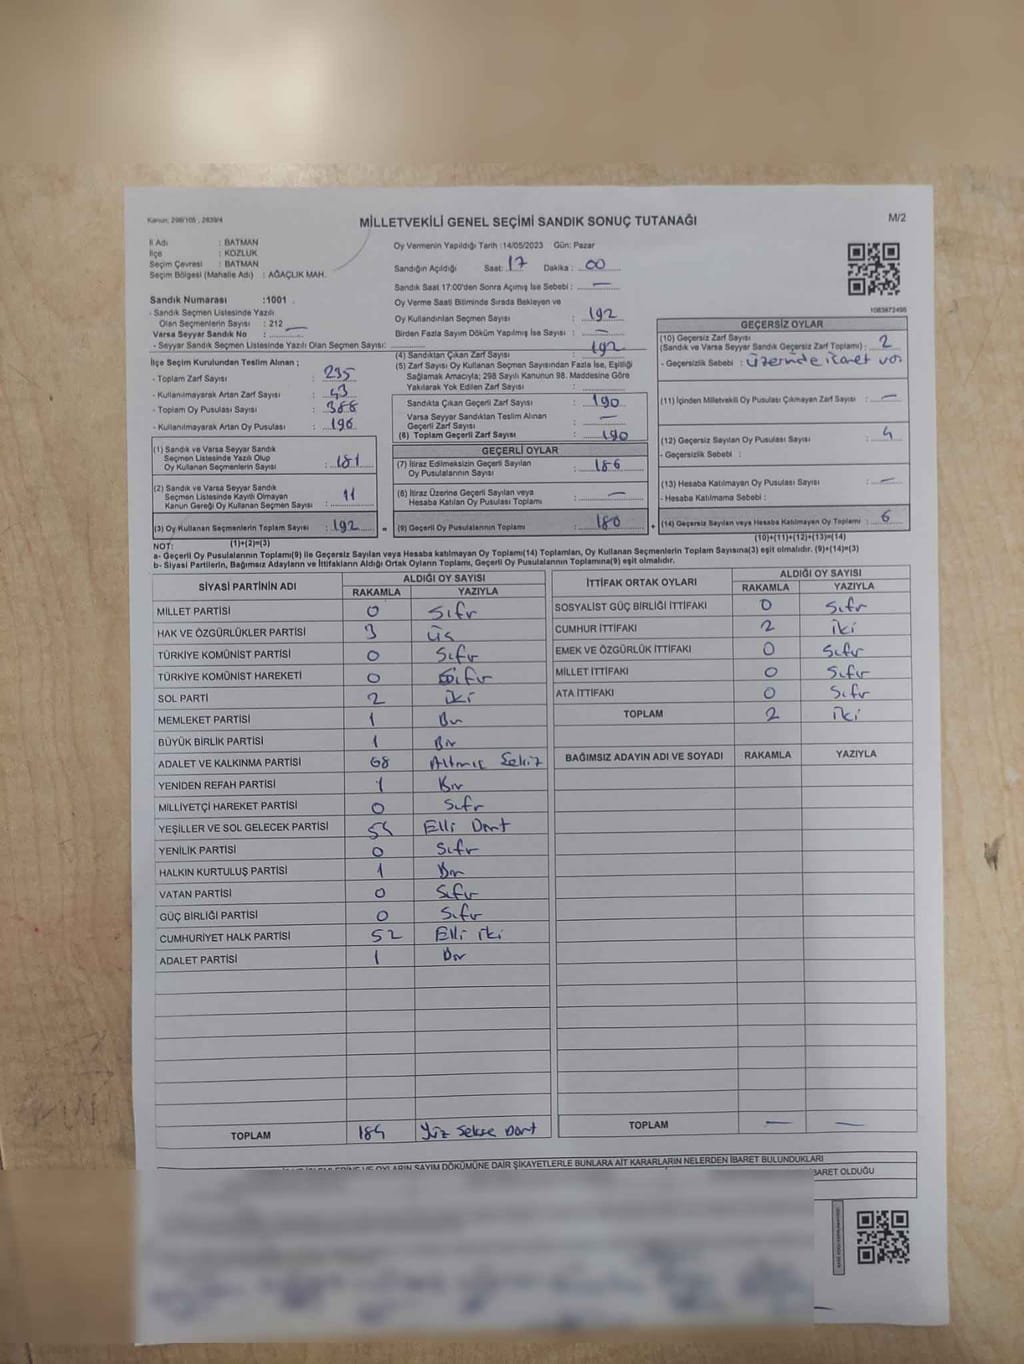 Kanun: 298/105 , 2839/4
MİLLETVEKİLİ GENEL SEÇİMİ SANDIK SONUÇ TUTANAĞI
M/2
İl Adı : BATMAN
İlçe : KOZLUK
Seçim Çevresi : BATMAN
Seçim Bölgesi (Mahalle Adı) : AĞAÇLIK MAH.
Sandık Numarası :1001
- Sandık Seçmen Listesinde Yazılı
Olan Seçmenlerin Sayısı : 212
Varsa Seyyar Sandık No :
- Seyyar Sandık Seçmen Listesinde Yazılı Olan Seçmen Sayısı:
İlçe Seçim Kurulundan Teslim Alınan ;
- Toplam Zarf Sayısı : 235
- Kullanılmayarak Artan Zarf Sayısı : 43
- Toplam Oy Pusulası Sayısı : 388
- Kullanılmayarak Artan Oy Pusulası : 196
(1) Sandık ve Varsa Seyyar Sandık
Seçmen Listesinde Yazılı Olup
Oy Kullanan Seçmenlerin Sayısı : 181
(2) Sandık ve Varsa Seyyar Sandık
Seçmen Listesinde Kayıtlı Olmayan
Kanun Gereği Oy Kullanan Seçmen Sayısı : 11
(3) Oy Kullanan Seçmenlerin Toplam Sayısı : 192 =
(1)+(2)=(3)
Oy Vermenin Yapıldığı Tarih :14/05/2023 Gün: Pazar
Sandığın Açıldığı Saat: 17 Dakika : 00
Sandık Saat 17:00'den Sonra Açılmış İse Sebebi : —
Oy Verme Saati Bitiminde Sırada Bekleyen ve
Oy Kullandırılan Seçmen Sayısı : 192
Birden Fazla Sayım Döküm Yapılmış İse Sayısı : —
(4) Sandıktan Çıkan Zarf Sayısı : 192
(5) Zarf Sayısı Oy Kullanan Seçmen Sayısından Fazla İse, Eşitliği
Sağlamak Amacıyla; 298 Sayılı Kanunun 98. Maddesine Göre
Yakılarak Yok Edilen Zarf Sayısı :
Sandıkta Çıkan Geçerli Zarf Sayısı : 190
Varsa Seyyar Sandıktan Teslim Alınan
Geçerli Zarf Sayısı : —
(6) Toplam Geçerli Zarf Sayısı : 190
GEÇERLİ OYLAR
(7) İtiraz Edilmeksizin Geçerli Sayılan
Oy Pusulalarının Sayısı : 186
(8) İtiraz Üzerine Geçerli Sayılan veya
Hesaba Katılan Oy Pusulası Toplamı : —
(9) Geçerli Oy Pusulalarının Toplamı : 180 +
1083872498
GEÇERSİZ OYLAR
(10) Geçersiz Zarf Sayısı
(Sandık ve Varsa Seyyar Sandık Geçersiz Zarf Toplamı) : 2
- Geçersizlik Sebebi : üzerinde işaret var
(11) İçinden Milletvekili Oy Pusulası Çıkmayan Zarf Sayısı : —
(12) Geçersiz Sayılan Oy Pusulası Sayısı : 4
- Geçersizlik Sebebi :
(13) Hesaba Katılmayan Oy Pusulası Sayısı : —
- Hesaba Katılmama Sebebi :
(14) Geçersiz Sayılan veya Hesaba Katılmayan Oy Toplamı : 6
(10)+(11)+(12)+(13)=(14)
NOT:
a- Geçerli Oy Pusulalarının Toplamı(9) ile Geçersiz Sayılan veya Hesaba katılmayan Oy Toplamı(14) Toplamları, Oy Kullanan Seçmenlerin Toplam Sayısına(3) eşit olmalıdır. (9)+(14)=(3)
b- Siyasi Partilerin, Bağımsız Adayların ve İttifakların Aldığı Ortak Oyların Toplamı, Geçerli Oy Pusulalarının Toplamına(9) eşit olmalıdır.
SİYASİ PARTİNİN ADI ALDIĞI OY SAYISI
RAKAMLA YAZIYLA
MİLLET PARTİSİ 0 Sıfır
HAK VE ÖZGÜRLÜKLER PARTİSİ 3 Üç
TÜRKİYE KOMÜNİST PARTİSİ 0 Sıfır
TÜRKİYE KOMÜNİST HAREKETİ 0 Sıfır
SOL PARTİ 2 iki
MEMLEKET PARTİSİ 1 Bir
BÜYÜK BİRLİK PARTİSİ 1 Bir
ADALET VE KALKINMA PARTİSİ 68 Altmış Sekiz
YENİDEN REFAH PARTİSİ 1 Bir
MİLLİYETÇİ HAREKET PARTİSİ 0 Sıfır
YEŞİLLER VE SOL GELECEK PARTİSİ 54 Elli Dört
YENİLİK PARTİSİ 0 Sıfır
HALKIN KURTULUŞ PARTİSİ 1 Bir
VATAN PARTİSİ 0 Sıfır
GÜÇ BİRLİĞİ PARTİSİ 0 Sıfır
CUMHURİYET HALK PARTİSİ 52 Elli iki
ADALET PARTİSİ 1 Bir
TOPLAM 184 Yüz Seksen Dört
İTTİFAK ORTAK OYLARI ALDIĞI OY SAYISI
RAKAMLA YAZIYLA
SOSYALİST GÜÇ BİRLİĞİ İTTİFAKI 0 Sıfır
CUMHUR İTTİFAKI 2 iki
EMEK VE ÖZGÜRLÜK İTTİFAKI 0 Sıfır
MİLLET İTTİFAKI 0 Sıfır
ATA İTTİFAKI 0 Sıfır
TOPLAM 2 iki
BAĞIMSIZ ADAYIN ADI VE SOYADI RAKAMLA YAZIYLA
TOPLAM — —
OYLARIN SAYIM DÖKÜMÜNE DAİR ŞİKAYETLERLE BUNLARA AİT KARARLARIN NELERDEN İBARET BULUNDUKLARI
BARET OLDUĞU